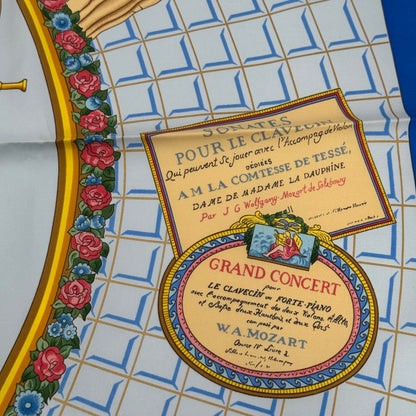 SONATES
POUR LE CLAVECIN
Qui peuvent se jouer avec l'Accompagt de Violon
DÉDIÉES
A M LA COMTESSE DE TESSÉ,
DAME DE MADAME LA DAUPHINE
Par J G Wolfgang Mozart de Salzbourg
GRAND CONCERT
pour
LE CLAVECIN ou FORTE-PIANO
avec l'accompagnement des deux Violons, Alto
et Basse deux Hautbois, et deux Cors
W.A. MOZART
Œuvre IV Livre 2